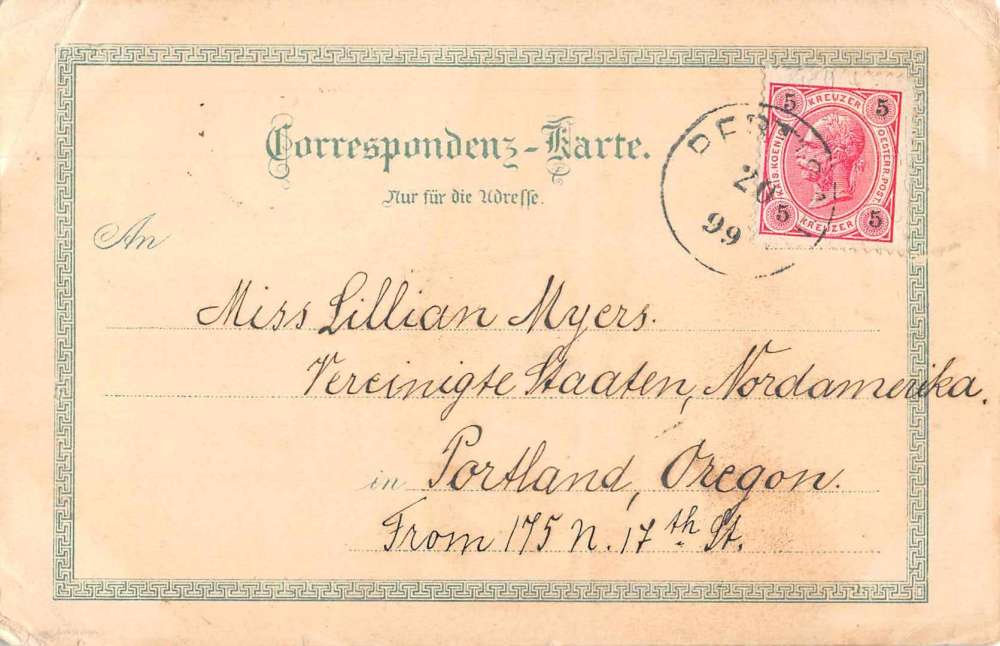 Correspondenz-Karte.
Nur für die Adresse.
5 KREUZER 5
OESTERR. POST.
5 KREUZER 5
20
99
An
Miss Lillian Myers.
Vereinigte Staaten, Nordamerika.
in Portland, Oregon.
From 175 N. 17th St.